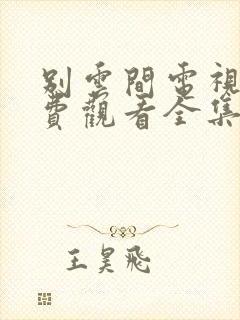 別雲間電視
費觀看全集
王昊飛